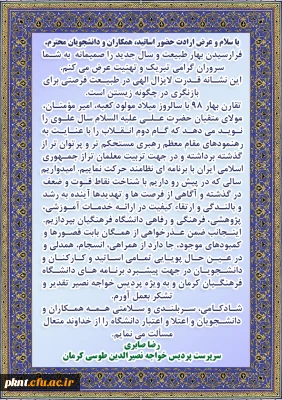 با سلام و عرض ارادت حضور اساتید، همکاران و دانشجویان محترم.
فرارسیدن بهار طبیعت و سال جدید را صمیمانه به شما
سروران گرامی تبریک و تهنیت عرض می کنم.
این نشانه قدرت لایزال الهی در طبیعت فرصتی برای
بازنگری در چگونه زیستن است.
تقارن بهار ۹۸ با سالروز میلاد مولود کعبه، امیر مؤمنان،
مولای متقیان حضرت علی علیه السلام سال علوی را
نوید می دهد که گام دوم انقلاب را با عنایت به
رهنمودهای مقام معظم رهبری مستحکم تر و پرتوان تر از
گذشته برداشته و در جهت تربیت معلمان تراز جمهوری
اسلامی ایران با برنامه ای نظامند حرکت نماییم. امیدواریم
سالی که در پیش رو داریم با شناخت نقاط قوت و ضعف
در گذشته و آگاهی از فرصت ها و تهدیدها آینده به رشد
و بالندگی و ارتقاء کیفیت در ارائه خدمات آموزشی،
پژوهشی، فرهنگی و رفاهی دانشگاه فرهنگیان بپردازیم.
اینجانب ضمن عذرخواهی از همگان بابت قصورها و
کمبودهای موجود، جا دارد از همراهی، انسجام، همدلی و
در عین حال پویایی تمامی اساتید و کارکنان و
دانشجویان در جهت پیشبرد برنامه های دانشگاه
فرهنگیان کرمان و به ویژه پردیس خواجه نصیر تقدیر و
تشکر بعمل آورم.
شادکامی، سربلندی و سلامتی همه همکاران و
دانشجویان و اعتلا و اعتبار دانشگاه را از خداوند متعال
مسألت می نمایم.
رضا صابری
سرپرست پردیس خواجه نصیرالدین طوسی کرمان
pknt.cfu.ac.ir